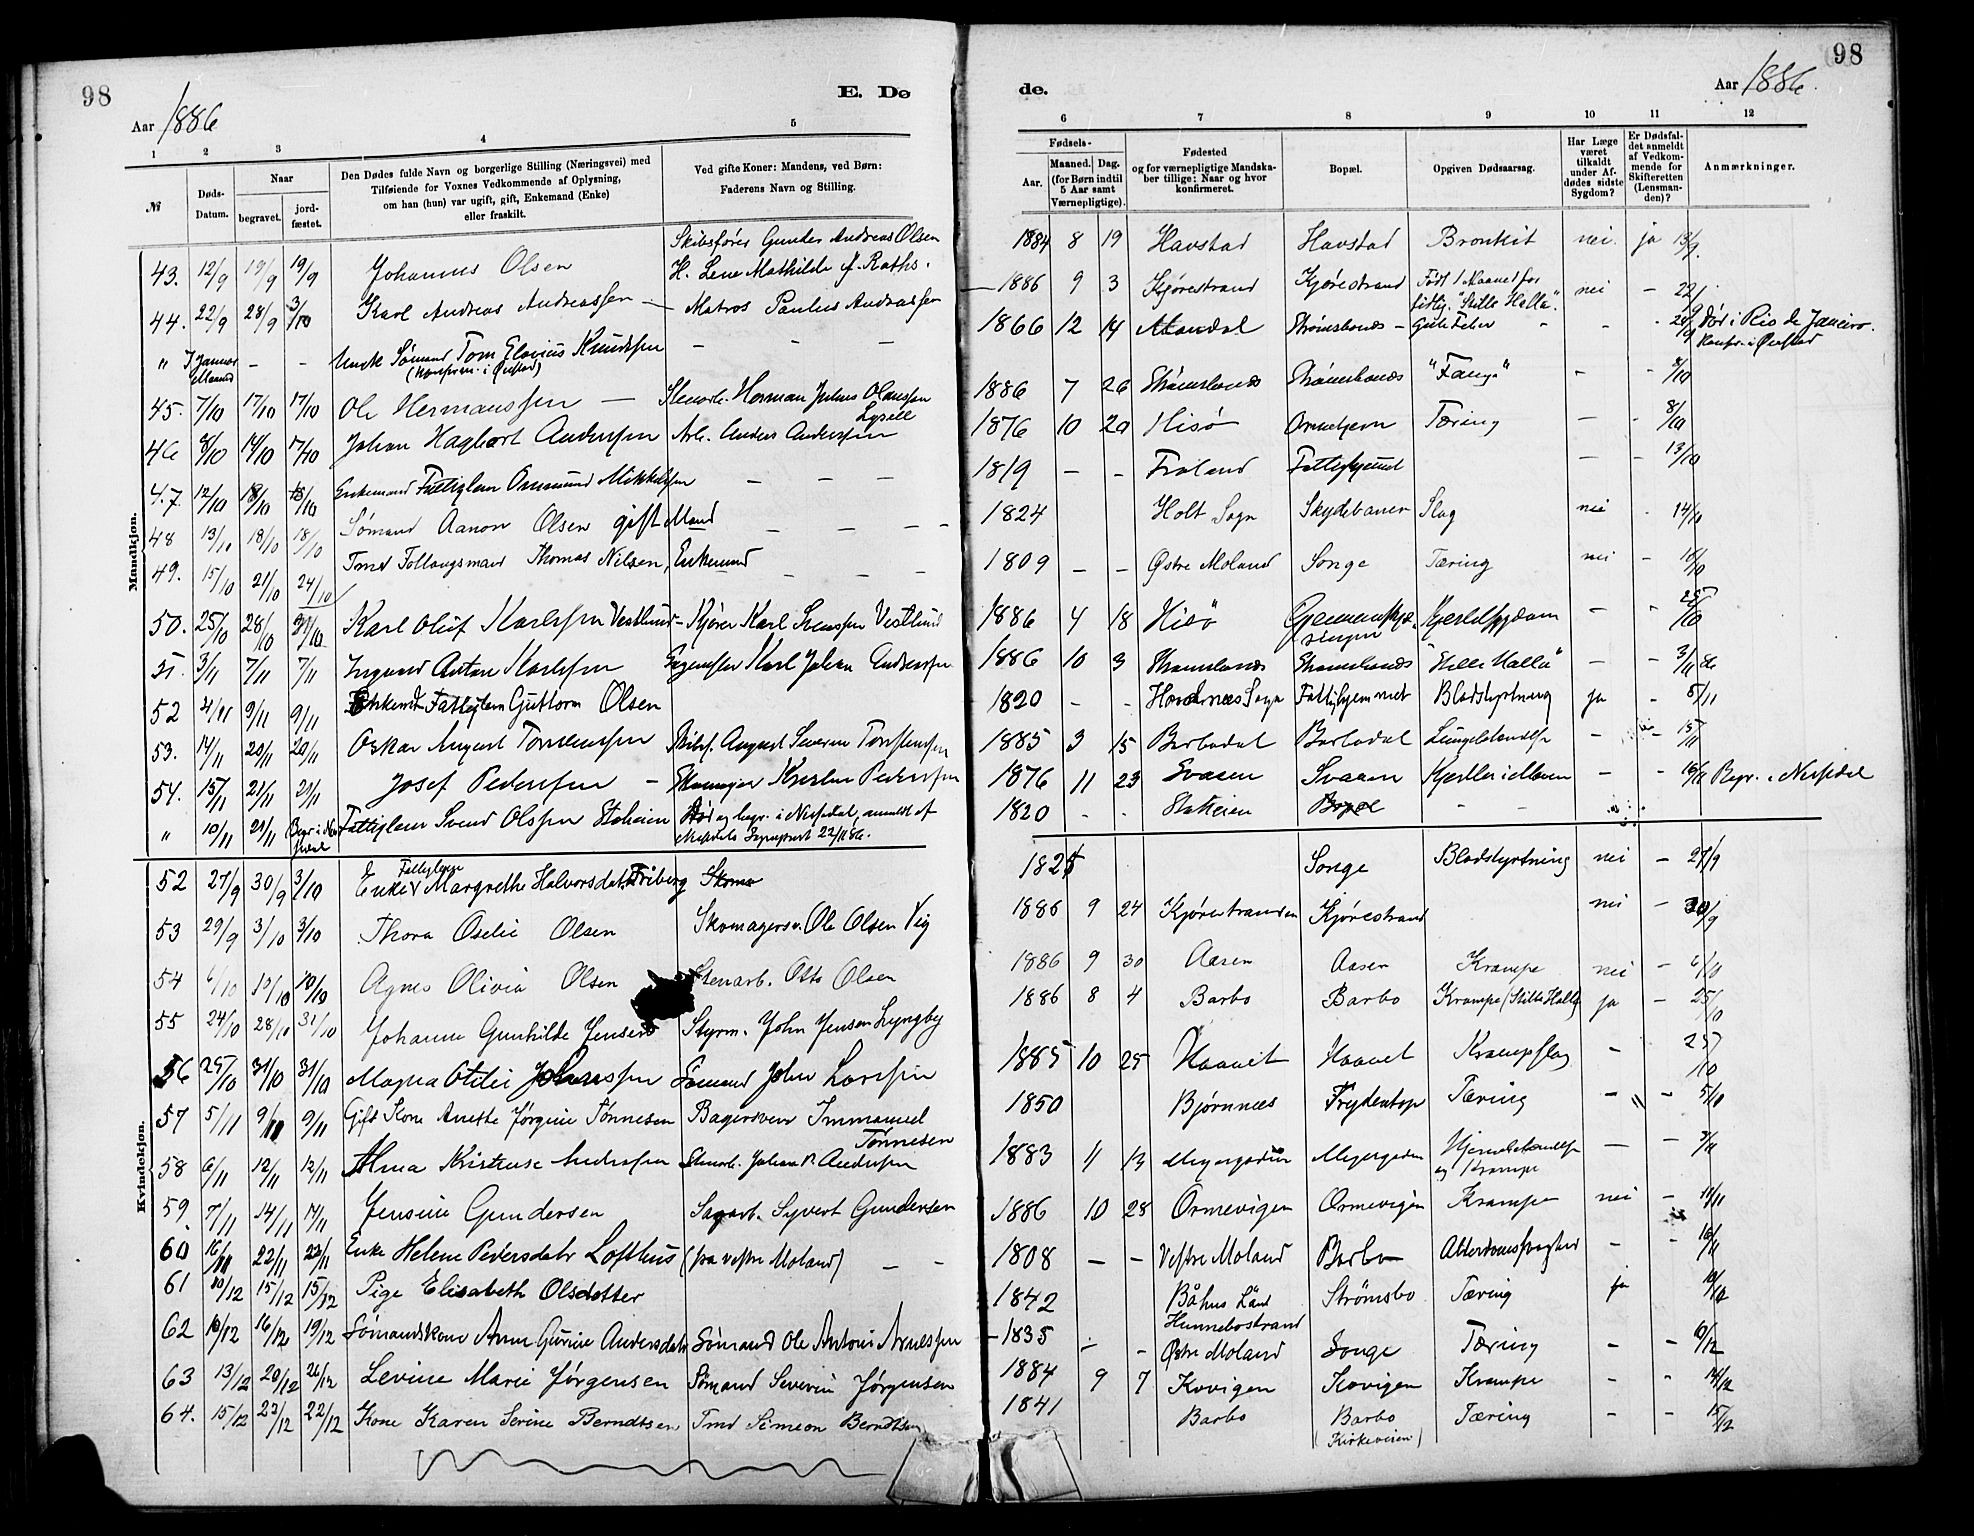 98
Aar 1886
E. Dø
1 2 3 4 5
№
Døds-Datum.
Naar
begravet.
jord-fæstet.
Den Dødes fulde Navn og borgerlige Stilling (Næringsvei) med
Tilføiende for Voxnes Vedkommende af Oplysning,
om han (hun) var ugift, gift, Enkemand (Enke)
eller fraskilt.
Ved gifte Koner: Mandens, ved Børn:
Faderens Navn og Stilling.
Mandkjøn.
Skibsfører Gunder Andreas Olsen
43. 12/9 19/9 19/9 Johannes Olsen H. Lene Mathilde f. Raths.
44. 22/9 28/9 3/10 Karl Andreas Andreassen — Matros Paulus Andreassen
" I Januar Maaned — — Ungk Sømand Tom Elovius Knudssen — — —
45. 7/10 17/10 17/10 Ole Hermanssen — Stenarb. Herman Julius Olaussen
46 8/10 14/10 17/10 Johan Hagbart Anderssen Arb. Anders Anderssen
47 12/10 18/10 18/10 Enkemand Fattiglem Ommund Mikkelssen — — —
48 13/10 18/10 18/10 Sømand Aanon Olsen gift Mand — — —
49. 15/10 21/10 24/10 Tmd Follaugsmand Thomas Nilsen, Enkemand — — —
50. 25/10 28/10 31/10 Karl Oluf Karlssen Vestlund — Kjører Karl Svenssen Vestlund
51. 3/11 7/11 7/11 Ingvard Anton Karlssen Karl Johan Anderssen
52 4/11 9/11 9/11 Enkemd Fattiglem Guttorm Olsen
53. 14/11 20/11 20/11 Oskar August Torstenssen Skibsf. August Severin Torstenssen
54. 15/11 21/11 21/11 Josef Pederssen — Skomager Kristen Pederssen
" 10/11 21/11 Begr. i Fattiglem Svend Olssen Stoheien Død og begr. i Nersedal, anmeldt af
Sognepræst 22/11 86.
Kvindekjøn.
Fattiglem
52 27/9 30/9 3/10 Enke Margrethe Halvorsdatr Friberg
53 29/9 3/10 3/10 Thora Oselie Olsen Skomagersv. Ole Olsen Vig
54 6/10 10/10 10/10 Agnes Olivia Olsen Stenarb. Otto Olsen
55 24/10 28/10 31/10 Johanne Gunhilde Jensen Styrm. John Jensen Lyngby
56 25/10 31/10 31/10 Magna Otilie Johnssen Sømand John Larssen
57 5/11 9/11 9/11 Gift Kone Anette Jørgine Tønnesen Bagersvend Immanuel
Tønnesen
58 6/11 12/11 12/11 Alma Kristense Anderssen Stenarb. Johan P. Anderssen
59. 7/11 14/11 14/11 Jensine Gundersen Sagarb. Syvert Gundersen
60 16/11 22/11 22/11 Enke Helene Pedersdatr Lofthus (fra vestre Moland) — —
61 10/12 15/12 15/12 Pige Elisabeth Olsdotter
62 10/12 16/12 19/12 Sømandskone Anne Gurine Andersdatr Sømand Ole Antoni Arnessen
63 13/12 20/12 26/12 Levine Marie Jørgensen Sømand Severin Jørgensen
64. 15/12 23/12 22/12 Kone Karen Serine Berndtsen Tmd Simeon Berndtsen
98
de.
Aar 1886.
6 7 8 9 10 11 12
Fødsels-
Aar.
Maaned. Dag.
(for Børn indtil
5 Aar samt
Værnepligtige).
Fødested
og for værnepligtige Mandska-
ber tillige: Naar og hvor
konfirmeret.
Bopæl.
Opgiven Dødsaarsag.
Har Læge
været
tilkaldt
under Af-
dødes sidste
Sygdom?
Er Dødsfal-
det anmeldt
af Vedkom-
mende for
Skifteretten
(Lensman-
den)?
Anmærkninger.
1884 8 19 Havstad Havstad Bronkit nei. ja 13/9.
1886 9 3 Kjørestrand Kjørestrand Født 1 Maaned for tidlig. "Stille Halla". nei — 22/9
1866 12 14 Mandal Strømsbonæs — Gule Feber — — 24/9 Død i Rio de Janeiro.
1886 7 26 Strømsbonæs Strømsbonæs "Fange" — — 8/10
1876 10 20 Hisø Tæring — — 8/10
1819 — — Froland Fattighjemmet — — 13/10
1824 Holt Sogn Skydebanen Slag nei - 14/10
1809 — — Østre Moland Songe Tæring nei — 16/10
1886 4 18 Hisø Hjertesygdom — — 25/10
1886 10 3 Strømsbonæs Strømsbonæs "Stille Halla" — — 3/11 86
1820 - - Hovdernæs Sogn Fattighjemmet Blodstyrtning ja - 5/11
1885 3 15 Barbodal Barbodal Lungebetændelse — — 15/11
1876 11 23 Svasen Svasen Kjertler i Maven — — 16/11 Begr. i Nersedal
1820 - - Stoheien — —
1825 Songe Blodstyrtning nei — 27/9
1886 9 24 Kjørestranden Kjørestrand nei — 30/9
1886 9 30 Aasen Aasen Krampe nei — 6/10
1886 8 4 Barbo Barbo Krampe (Stille Halla) ja — 25/10
1885 10 25 Haavet Haavet Krampslag — — 25/10
1850 Bjørnnæs Frydentop Tæring — — 5/10
1883 11 13 Meyergaden Meyergaden Hjernebetændelse og Krampe — — 7/11
1886 10 28 Ormevigen Ormevigen Krampe nei — 10/11
1808 — — Vestre Moland Barbo Alderdomssvaghed — - 16/11
1842 Båhus Län Hunnebostrand Strømsbo Tæring ja 10/12
1835 - - Østre Moland Songe Tæring — — 10/12
1884 9 7 Kovigen Kovigen Krampe — — 14/12
1841 Barbo Barbo Tæring — — 15/12
(Kirkeveien)